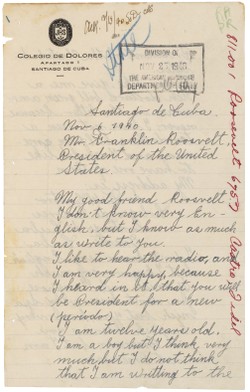 COLEGIO DE DOLORES
APARTADO 1
SANTIAGO DE CUBA
DIVISION OF
DEPARTMENT OF STATE
Santiago de Cuba.
Nov 6 1940.
Mr. Franklin Roosvelt,
President of the United
States.
My good friend Roosvelt
I don't know very En-
glish, but I know as much
as write to you.
I like to hear the radio, and
I am very happy, because
I heard in it, that you will
be President for a new
(periodo)
I am twelve years old.
I am a boy but I think very
much but I do not think
that I am writting to the
811.001 Roosevelt
Castro, Fidel